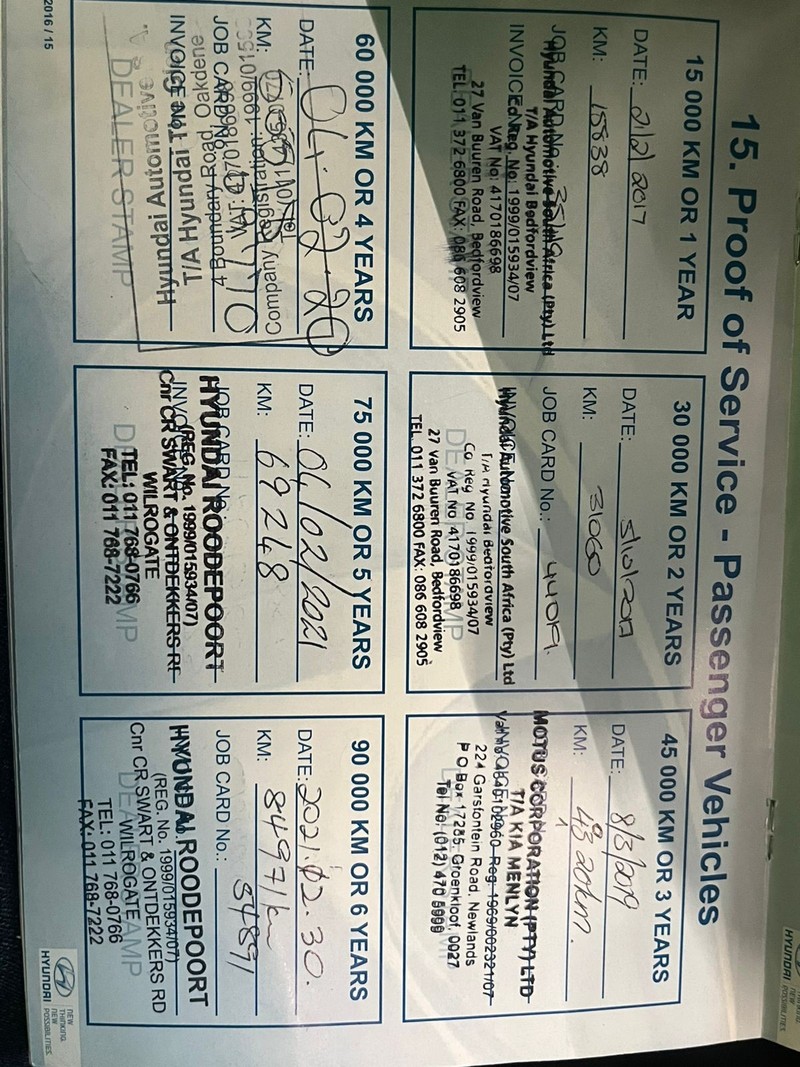 15. Proof of Service - Passenger Vehicles
15 000 KM OR 1 YEAR
DATE: 2/2/2017
KM: 15838
JOB CARD No.:
Hyundai Automotive South Africa (Pty) Ltd
T/A Hyundai Bedfordview
INVOICE
Co. Reg. No. 1999/015934/07
VAT No: 4170186698
27 Van Buuren Road, Bedfordview
TEL: 011 372 6800 FAX: 086 608 2905
30 000 KM OR 2 YEARS
DATE: 5/10/2017
KM: 31060
JOB CARD No.: 44019
Hyundai Automotive South Africa (Pty) Ltd
T/A Hyundai Bedfordview
Co. Reg. No. 1999/015934/07
VAT No 4170186698
27 Van Buuren Road, Bedfordview
TEL. 011 372 6800 FAX: 086 608 2905
45 000 KM OR 3 YEARS
DATE: 8/3/2019
KM:
MOTUS CORPORATION (PTY) LTD
T/A KIA MENLYN
Vat No 4640102960 Reg: 1969/002321/07
224 Garsfontein Road, Newlands
P O Box 17285, Groenkloof, 0027
Tel No: (012) 470 5999
60 000 KM OR 4 YEARS
DATE: 04.02.20
KM:
JOB CARD No.:
INVOICE No.:
Company Registration:
4 Boundary Road, Oakdene
T/A Hyundai The Glen
Hyundai Automotive
DEALER STAMP
75 000 KM OR 5 YEARS
DATE: 04/02/2021
KM: 69248
JOB CARD No.:
HYUNDAI ROODEPOORT
(REG. No. 1999/015934/07)
Cnr CR SWART & ONTDEKKERS RD
WILROGATE
TEL: 011 768-0766
FAX: 011 768-7222
90 000 KM OR 6 YEARS
DATE: 2021.12.30.
KM: 84971km
JOB CARD No.: 84891
HYUNDAI ROODEPOORT
(REG. No. 1999/015934/07)
Cnr CR SWART & ONTDEKKERS RD
WILROGATE
TEL: 011 768-0766
FAX: 011 768-7222
2016 / 15
HYUNDAI
NEW THINKING.
NEW POSSIBILITIES.
HYUNDAI
NEW THINKING.
NEW POSSIBILITIES.